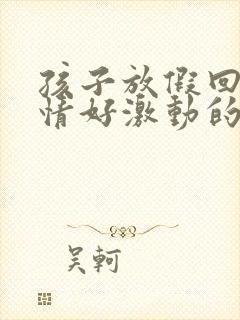 孩子放假回
情好激動的
吴軻